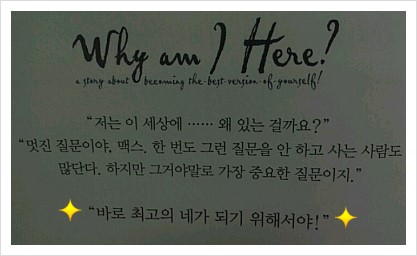 Why am I Here?
a story about becoming-the-best-version-of-yourself!
“저는 이 세상에 ······ 왜 있는 걸까요?”
“멋진 질문이야, 맥스. 한 번도 그런 질문을 안 하고 사는 사람도
많단다. 하지만 그거야말로 가장 중요한 질문이지.”
“바로 최고의 네가 되기 위해서야!”